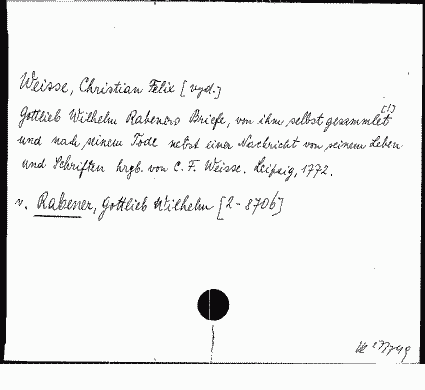 Weisse, Christian Felix [vyd.]
[!]
Gottlieb Wilhelm Rabeners Briefe, von ihm selbst gesammlet
und nach seinem Tode nebst einer Nachricht von seinem Leben
und Schriften hrgb. von C. F. Weisse. Leipzig, 1772.
v. Rabener, Gottlieb Wilhelm [2-8706]